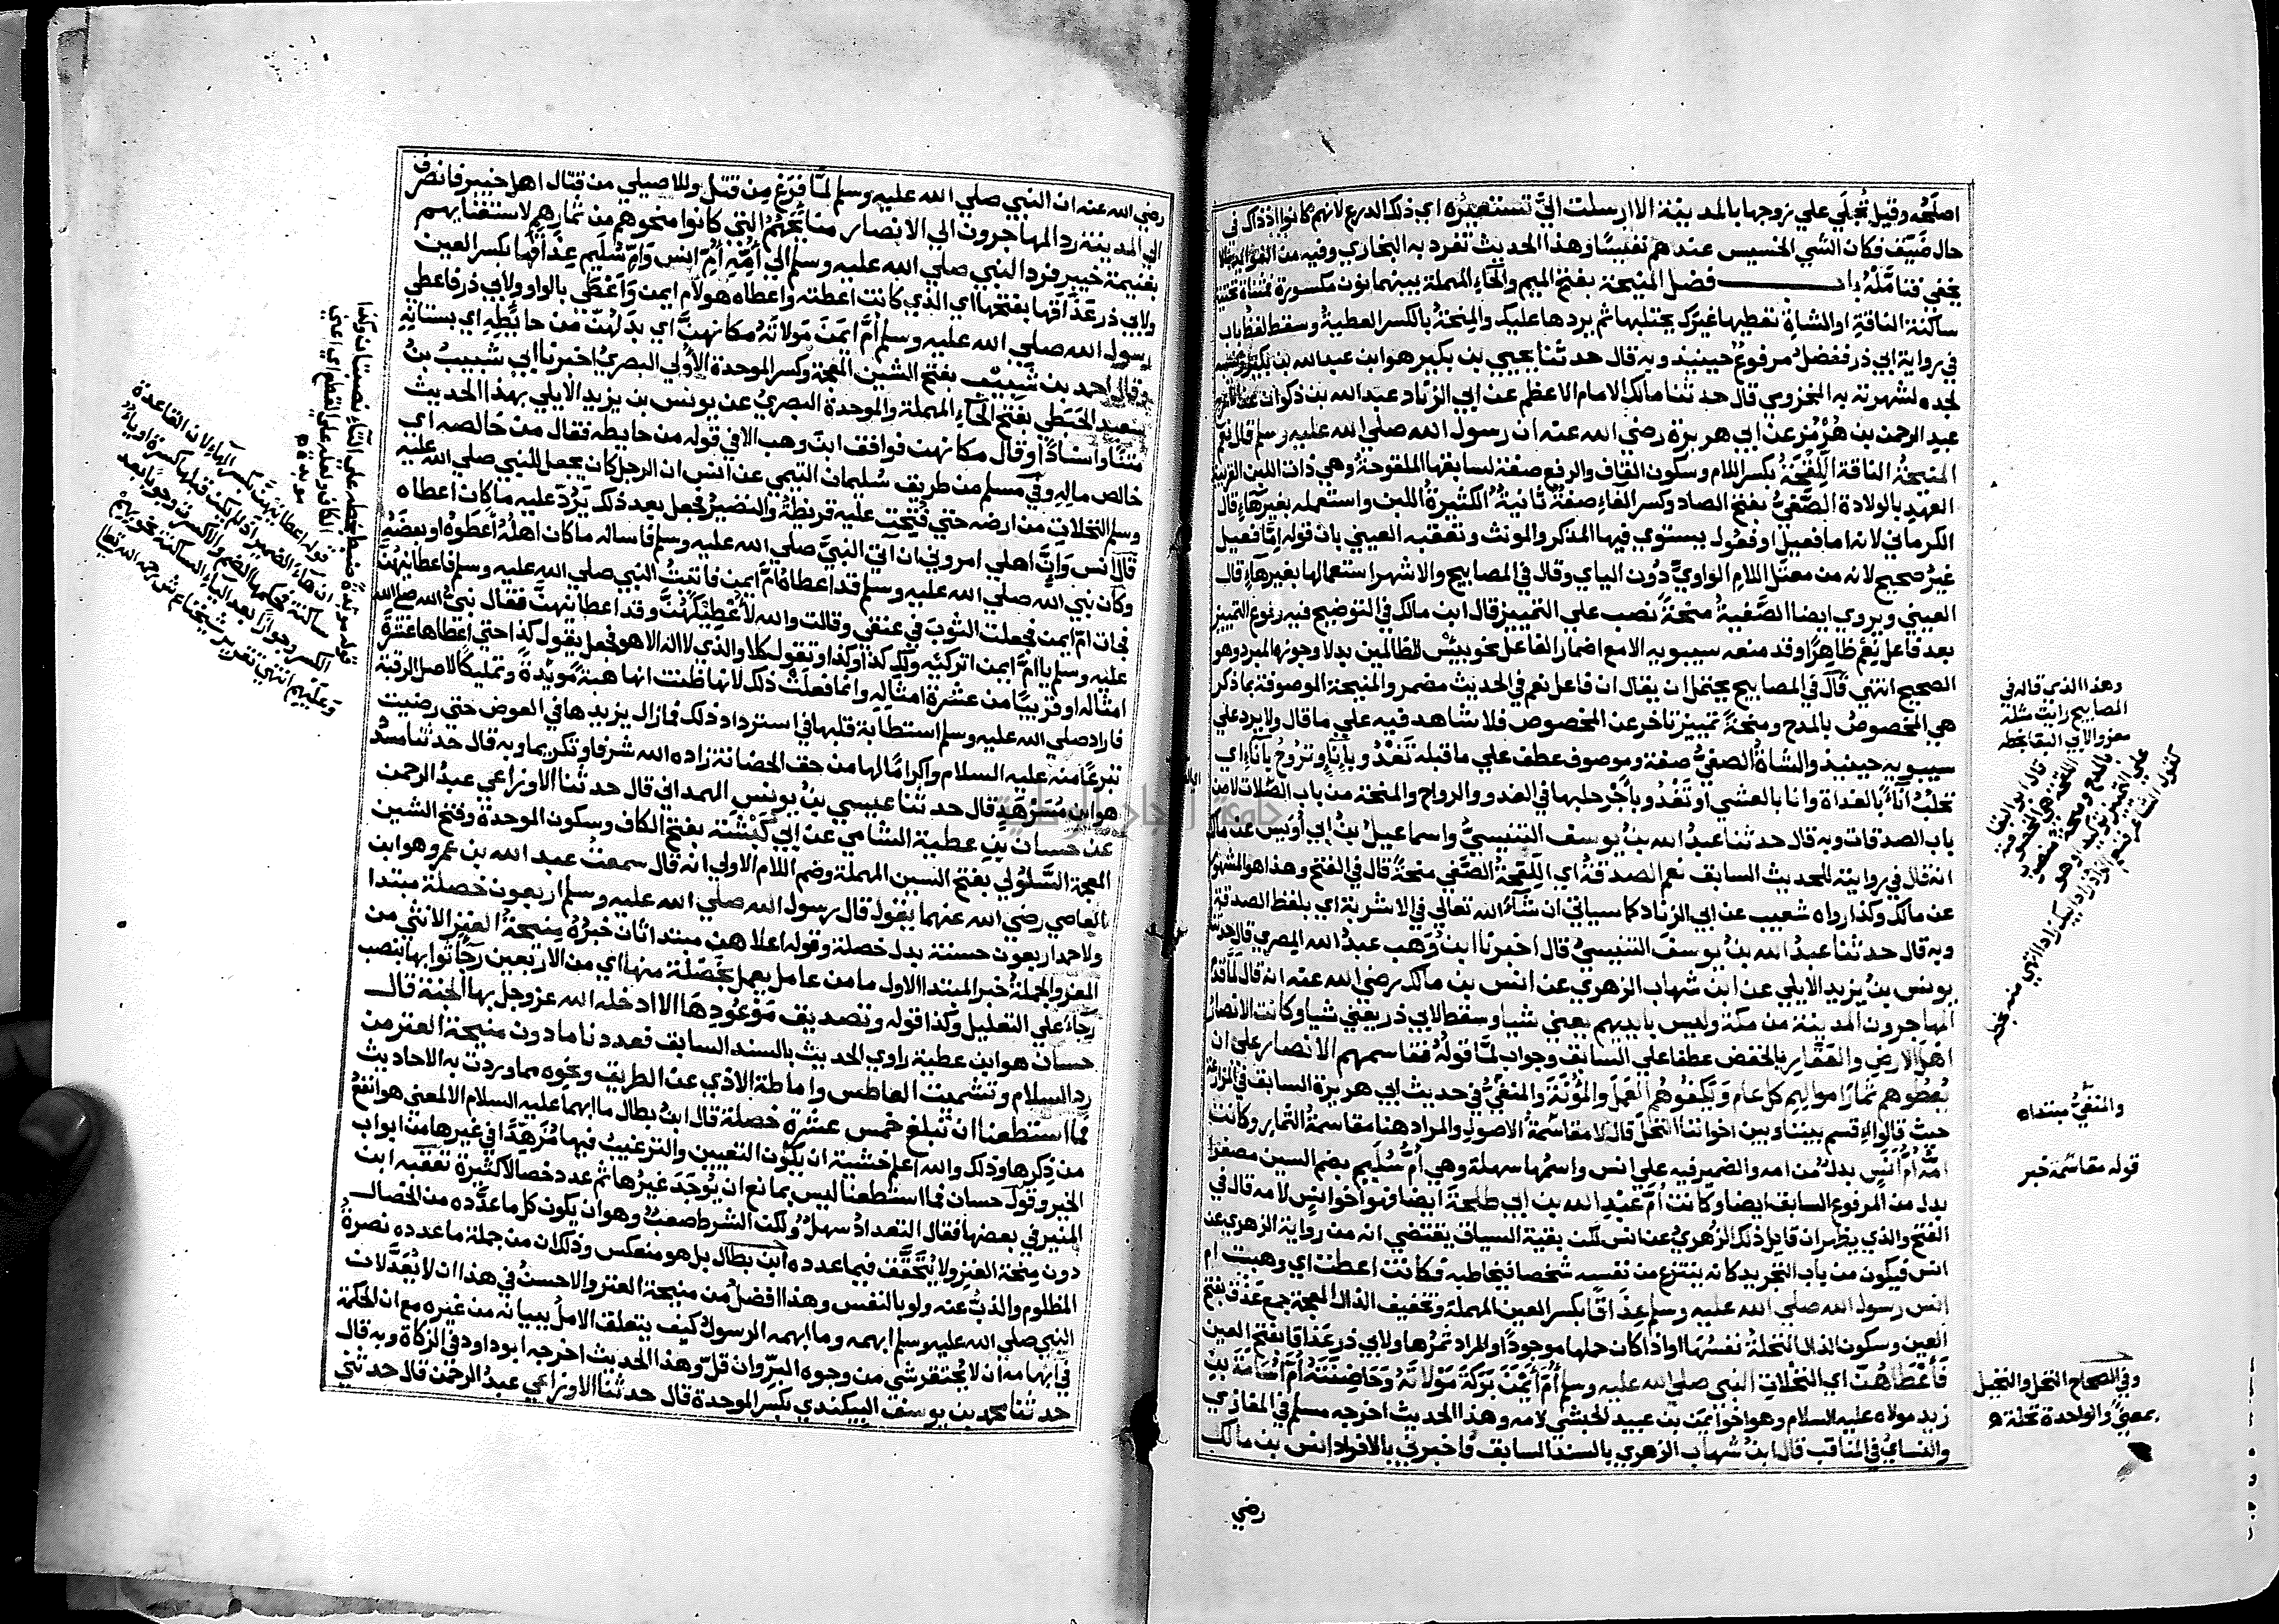 اصلحه وقيل تجلي علي زوجها بالمدينة الا ارسلت اليّ تستعيره اي ذلك الدرع لانهم كانوا اذ ذاك في
حال ضيق فكان الشي الخسيس عندهم نفيسا وهذا الحديث تفرد به البخاري وفيه من الفوايد ما لا
يخفي فتأمله باب فضل المنيحة بفتح الميم والحاء المهملة بينهما نون مكسورة فمثناة تحتية
ساكنة الناقة او الشاة تعطيها غيرك يحتلبها ثم يردها عليك والمنحة بالكسر العطية وسقط لفظ باب
في رواية ابي ذر ففضل مرفوع حينيذ وبه قال حدثنا يحيي بن بكير هو ابن عبد الله بن بكير
لجده لشهرته به المخزومي قال حدثنا مالك الامام الاعظم عن ابي الزناد عبد الله بن ذكوان عن الاعرج
عبد الرحمن بن هرمز عن ابي هريرة رضي الله عنه ان رسول الله صلي الله عليه وسلم قال نعم
المنيحة الناقة اللقحة بكسر اللام وسكون القاف والرفع صفة لسابقها الملقوحة وهي ذات اللبن القريبة
العهد بالولادة الصفيّ بفتح الصاد وكسر الفاء صفة ثانية الكثيرة اللبن واستعمله بغير هاء قال
الكرماني لانه اما فعيل او فعول يستوي فيها المذكر والمونث وتعقبه العيني بان قوله اما فعيل
غير صحيح لانه من معتل اللام الواوي دون الياي وقال في المصابيح والاشهر استعمالها بغير هاء قال
العيني ويروي ايضا الصفية منحة نصب علي التمييز قال ابن مالك في التوضيح فيه وقوع التمييز
بعد فاعل نعم ظاهرا وقد منعه سيبويه الا مع اضمار الفاعل نحو بئس للظالمين بدلا وجوزه المبرد وهو
الصحيح انتهي قال في المصابيح يحتمل ان يقال ان فاعل نعم في الحديث مضمر والمنيحة الموصوفة بما ذكر
هي المخصوص بالمدح ومنحة تمييز تاخر عن المخصوص فلا شاهد فيه علي ما قال ولا يرد علي
سيبويه حينيذ والشاة الصفيّ صفة وموصوف عطف علي ما قبله تغدو باناء وتروح باناء اي
تحلب اناء بالغداة وانا بالعشي او تغدو باجر حلبها في الغدو والرواح والمنحة من باب الصلات لا من
باب الصدقات وبه قال حدثنا عبد الله بن يوسف التنيسيّ واسماعيل بن ابي اويس عن مالك
انه قال في روايته للحديث السابق نعم الصدقة اي اللقحة الصفي منحة قال في الفتح وهذا هو المشهور
عن مالك وكذا رواه شعيب عن ابي الزناد كما سياتي ان شاء الله تعالي في الاشربة اي بلفظ الصدقة
وبه قال حدثنا عبد الله بن يوسف التنيسيّ قال اخبرنا ابن وهب عبد الله المصري قال حدثنا
يونس بن يزيد الايلي عن ابن شهاب الزهري عن انس بن مالك رضي الله عنه انه قال لما قدم
المهاجرون المدينة من مكة وليس بايديهم يعني شيا وسقط لابي ذر يعني شيا وكانت الانصار
اهل الارض والعقار بالخفض عطفا علي السابق وجواب لما قوله فقاسمهم الانصار علي ان
يعطوهم ثمار اموالهم كل عام ويكفوهم العمل والمؤنة والمنفيّ في حديث ابي هريرة السابق في المزارعة
حيث قالوا اقسم بيننا وبين اخواننا النخل قال لا مقاسمة الاصول والمراد هنا مقاسمة الثمار وكانت
امّه امّ انس بدل من امه والضمير فيه علي انس واسمها سهلة وهي امّ سليم بضم السين مصغرا
بدل من المرفوع السابق ايضا وكانت امّ عبد الله بن ابي طلحة ايضا فهو اخو انس لامه قال في
الفتح والذي يظهر ان قايل ذلك الزهري عن انس لكن بقية السياق يقتضي انه من رواية الزهري عن
انس فيكون من باب التجريد كانه ينتزع من نفسه شخصا فيخاطبه فكانت اعطت اي وهبت ام
انس رسول الله صلي الله عليه وسلم عذاقا بكسر العين المهملة وتخفيف الذال المعجمة جمع عذق بفتح
العين وسكون الذال النخلة نفسها او اذا كان حملها موجودا والمراد ثمرها ولابي ذر عذاقا بفتح العين
فاعطاهنّ اي النخلات النبي صلي الله عليه وسلم امّ ايمن بركة مولاته وحاضنته امّ اسامة بن
زيد مولاه عليه السلام وهو اخو ايمن بن عبيد الحبشي لامه وهذا الحديث اخرجه مسلم في المغازي
والنساي في المناقب قال ابن شهاب الزهري بالسند السابق فاخبرني بالافراد انس بن مالك
رضي
وهذا الذي قاله في
المصابيح رايت مثله
معزوا لابي البقا بخطه
والمنفيّ مبتداه
قوله مقاسمة خبر
وفي الصحاح النخل والنخيل
بمعني والواحدة نخلة ه
رضي الله عنه ان النبي صلي الله عليه وسلم لما فرغ من قتل وللاصيلي من قتال اهل خيبر فانصرف
الي المدينة رد المهاجرون الي الانصار منائحهم التي كانوا منحوهم من ثمارهم لاستغنائهم
بغنيمة خيبر فرد النبي صلي الله عليه وسلم الي امّه امّ انس وامّ سليم عذاقها بكسر العين
ولابي ذر عذاقها بفتحها اي الذي كانت اعطته واعطاه هو لام ايمن واعطي بالواو ولابي ذر فاعطي
رسول الله صلي الله عليه وسلم امّ ايمن مولاته مكانهنّ اي بدلهنّ من حايطه اي بستانه
وقال احمد بن شبيب بفتح الشين المعجمة وكسر الموحدة الاولي البصري اخبرنا ابي شبيب بن
سعيد الحبطي بفتح الحاء المهملة والموحدة البصري عن يونس بن يزيد الايلي بهذا الحديث
متنا واسنادا وقال مكانهن فوافق ابن وهب الا في قوله من حايطه فقال من خالصه اي
خالص ماله وفي مسلم من طريق سليمان التيمي عن انس ان الرجل كان يجعل للنبي صلي الله عليه
وسلم النخلات من ارضه حتي فتحت عليه قريظة والنضير فجعل بعد ذلك يردّ عليه ما كان اعطاه
قال انس وانّ اهلي امروني ان آتي النبيّ صلي الله عليه وسلم فاساله ما كان اهله اعطوه او بعضه
وكان نبي الله صلي الله عليه وسلم قد اعطاه امّ ايمن فاتيت النبي صلي الله عليه وسلم فاعطانيهنّ
فجات ام ايمن فجعلت الثوب في عنقي وقالت والله لا نعطيكهنّ وقد اعطانيهنّ فقال نبيّ الله صلي الله
عليه وسلم يا امّ ايمن اتركيه ولك كذا وكذا وتقول كلا والذي لا اله الا هو فجعل يقول كذا حتي اعطاها عشرة
امثاله او قريبا من عشرة امثاله وانما فعلت ذلك لانها ظنت انها هبة مؤبدة وتمليكا لاصل الرقبة
فاراد صلي الله عليه وسلم استطابة قلبها في استرداد ذلك فما زال يزيدها في العوض حتي رضيت
تبرعا منه عليه السلام واكراما لها من حق الحضانة زاده الله شرفا وتكريما وبه قال حدثنا مسدد
هو ابن مسرهد قال حدثنا عيسي بن يونس الهمداني قال حدثنا الاوزاعي عبد الرحمن
عن حسان بن عطية الشامي عن ابي كبشة بفتح الكاف وسكون الموحدة وفتح الشين
المعجمة السلولي بفتح السين المهملة وضم اللام الاولي انه قال سمعت عبد الله بن عمرو هو ابن
العاصي رضي الله عنهما يقول قال رسول الله صلي الله عليه وسلم اربعون خصلة مبتدا
ولاحمد اربعون حسنة بدل خصلة وقوله اعلاهن مبتدا ثان خبره منيحة العنز الانثي من
المعز والجملة خبر المبتدا الاول ما من عامل يعمل بخصلة منها اي من الاربعين رجاء ثوابها بنصب
رجاء علي التعليل وكذا قوله وتصديق موعودها الا ادخله الله عز وجل بها الجنة قال
حسان هو ابن عطية راوي الحديث بالسند السابق فعددنا ما دون منيحة العنز من
رد السلام وتشميت العاطس واماطة الاذي عن الطريق ونحوه مما وردت به الاحاديث
فما استطعنا ان نبلغ خمس عشرة خصلة قال ابن بطال ما ابهمها عليه السلام الا لمعني هو انفع
من ذكرها وذلك والله اعلم خشية ان يكون التعيين والترغيب فيها مزهدا في غيرها من ابواب
الخير وقول حسان فما استطعنا ليس بمانع ان يوجد غيرها ثم عدد خصالا كثيرة تعقبه ابن
المنير في بعضها فقال التعداد سهل ولكن الشرط صعب وهو ان يكون كل ما عدده من الخصال
دون منحة العنز ولا يتحقق فيما عدده ابن بطال بل هو منعكس وذلك ان من جملة ما عدده نصرة
المظلوم والذبّ عنه ولو بالنفس وهذا افضل من منيحة العنز والاحسن في هذا ان لا يعدّ لان
النبي صلي الله عليه وسلم ابهمه وما ابهمه الرسول كيف يتعلق الامل ببيانه من غيره مع ان الحكمة
في ابهامه ان لا يحتقر شي من وجوه البرّ وان قلّ وهذا الحديث اخرجه ابو داود في الزكاة وبه قال
حدثنا محمد بن يوسف البيكندي بكسر الموحدة قال حدثنا الاوزاعي عبد الرحمن قال حدثني